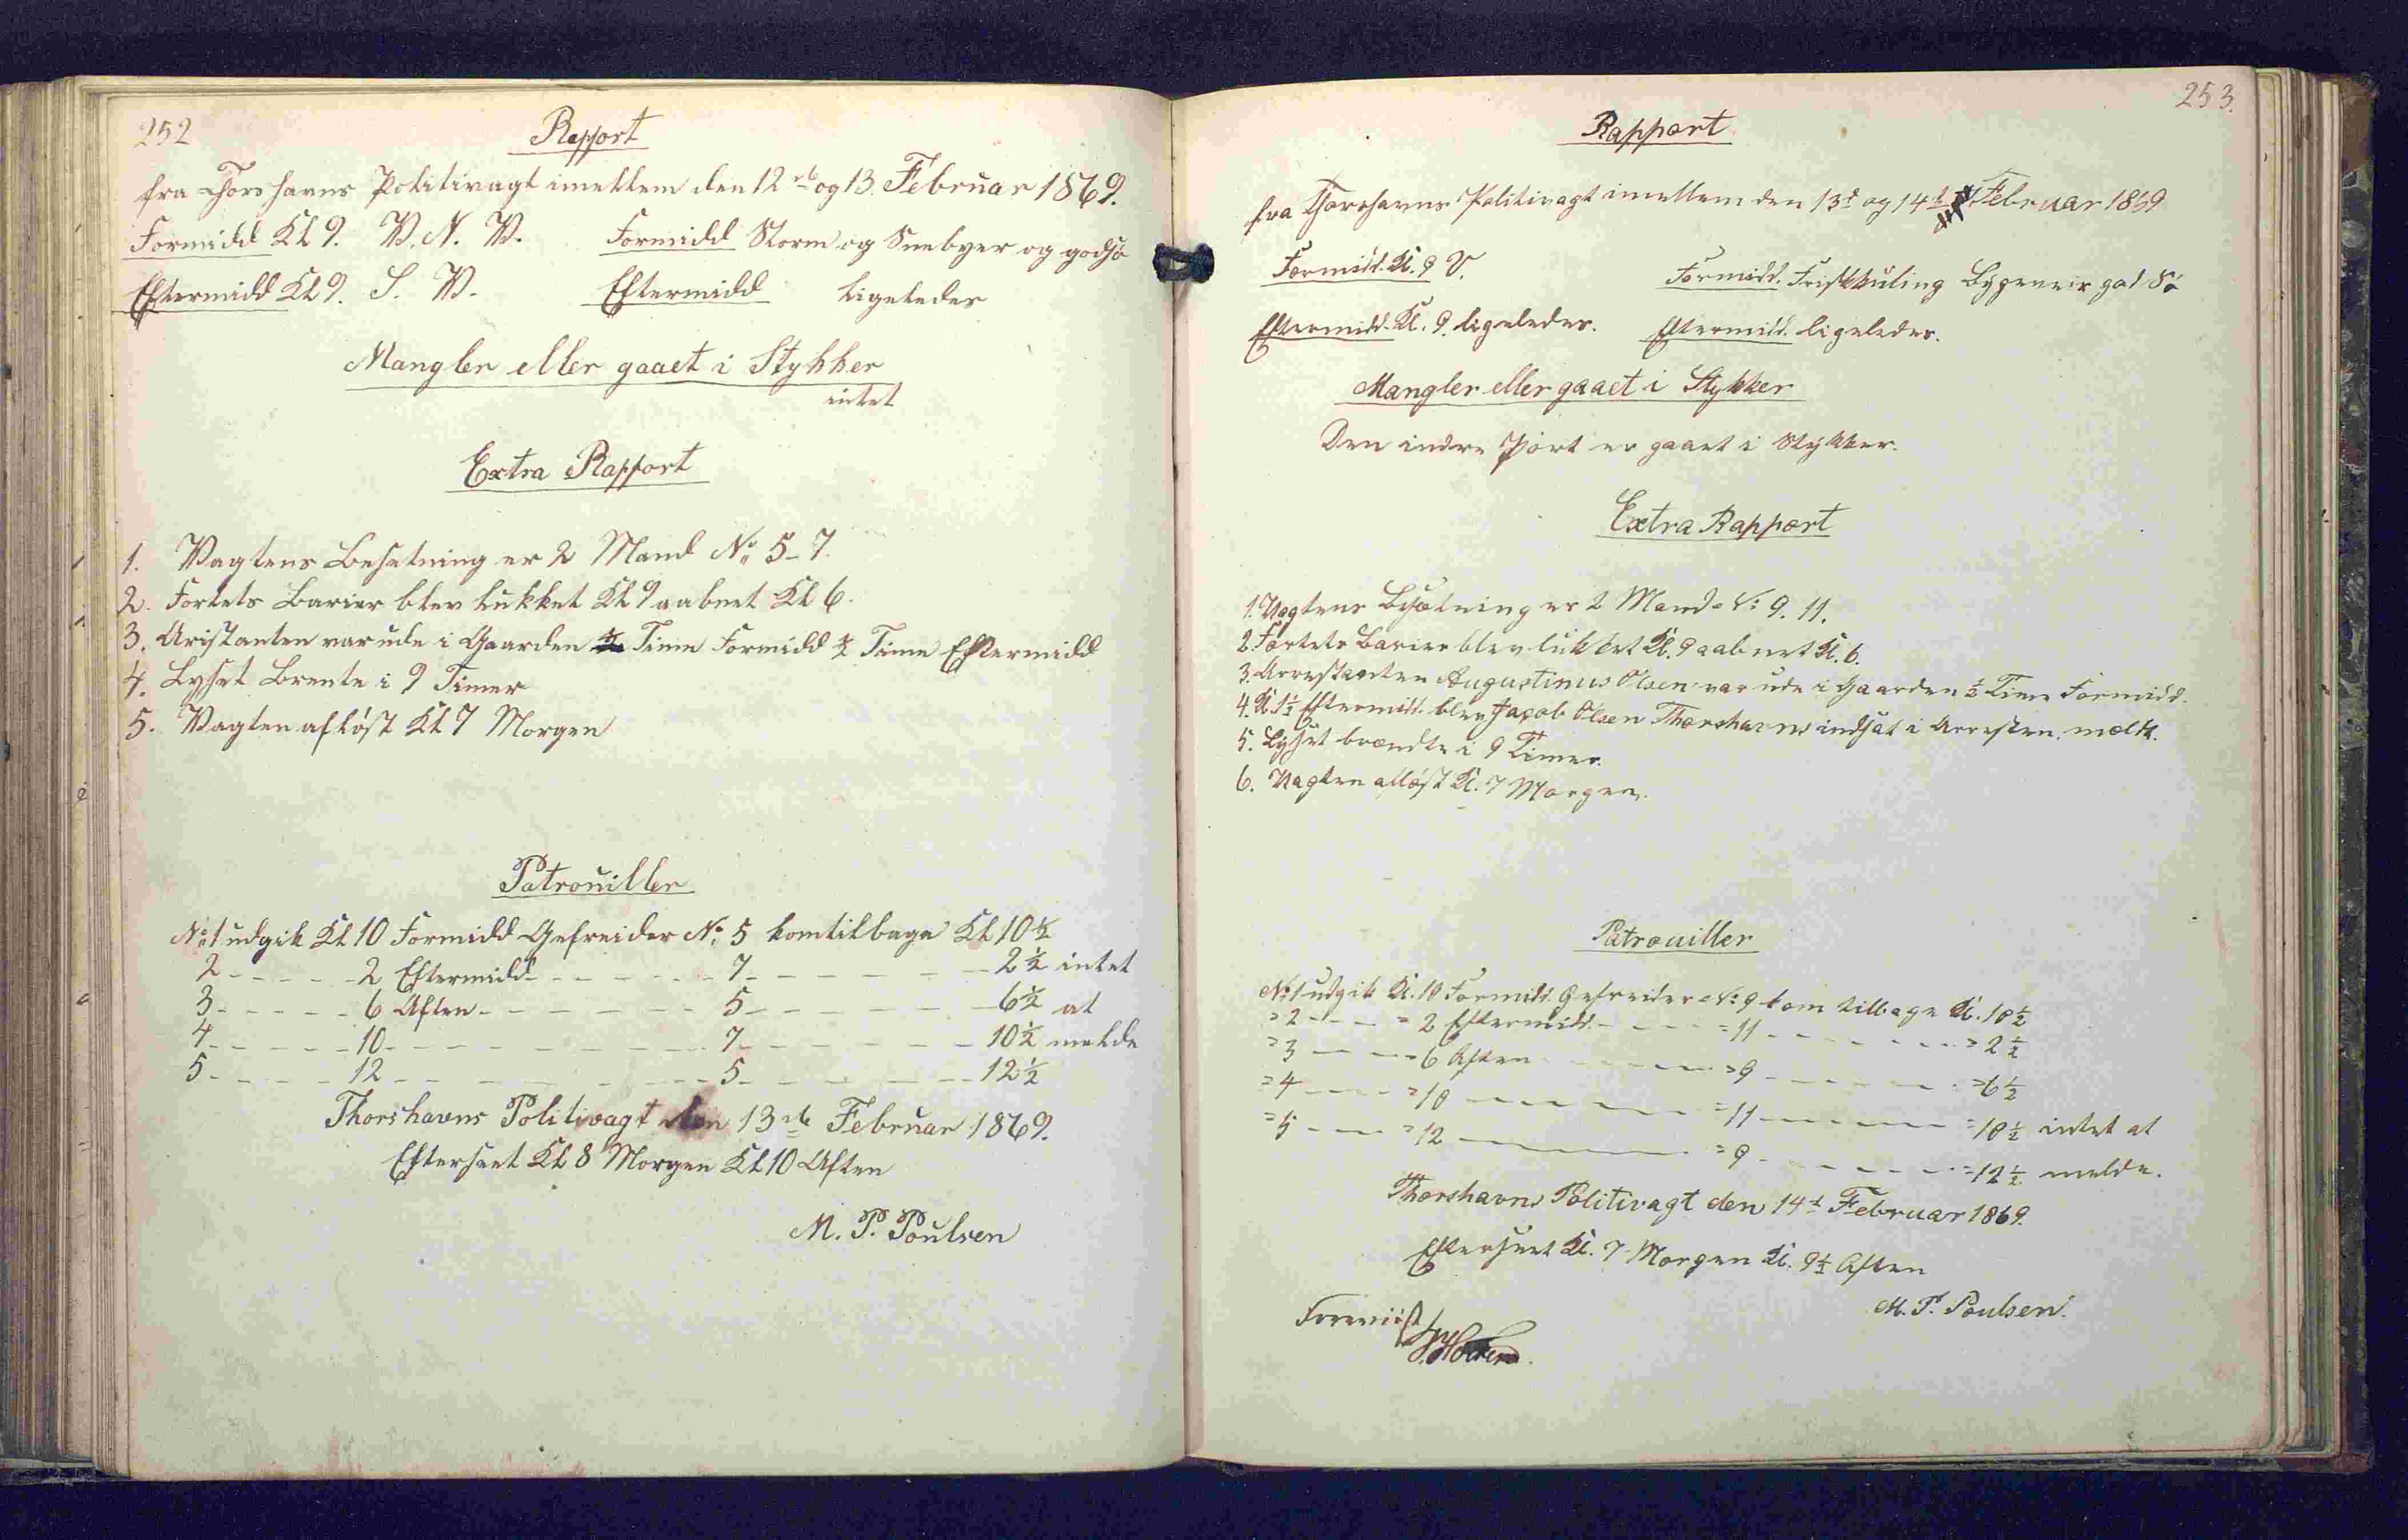 252
Rapport
fra Thorshavns Politivagt imellem den 12te og 13. Februar 1869.
Formidd Kl 9. V. N. V. Formidd Storm og Snebyer og god Sö
Eftermidd Kl 9. S. V. Eftermidd ligeledes
Mangler eller gaaet i Stykker
intet
Extra Rapport
1. Vagtens Besetning er 2 Mand No 5-7.
2. Fortets Barier blev lukket Kl 9 aabnet Kl 6.
3. Aristanten var ude i Gaarden ½ Time Formidd ½ Time Eftermidd
4. Lyset Brente i 9 Timer
5. Vagten aflöst Kl 7 Morgen
Patrouiller
No 1 udgik Kl 10 Formidd Gefreider No 5 kom tilbage Kl 10½
2 - - - - - 2 Eftermidd - - - - - - 7 - - - - - - 2½ intet
3 - - - - - 6 Aften - - - - - - 5 - - - - - - 6½ at
4 - - - - - 10 - - - - - - - - 7 - - - - - - 10½ melde
5 - - - - - 12 - - - - - - - - 5 - - - - - - 12½
Thorshavns Politivagt den 13de Februar 1869.
Efterseet Kl 8 Morgen Kl 10 Aften
M. P. Poulsen
253.
Rapport
fra Thorshavns Politivagt imellem den 13d og 14d Februar 1869
Formidd. Kl. 9 V. Formidd. Friskkuling Bygeveir god Sö
Eftermidd. Kl. 9. ligeledes. Eftermidd. ligeledes.
Mangler eller gaaet i Stykker
Den indre Port er gaaet i Stykker.
Extra Rapport
1. Vagtens Besætning er 2 Mand No: 9. 11.
2. Fortets Barier blev lukket Kl. 9 aabnet Kl. 6.
3. Arrestanten Augustinus Olsen var ude i Gaarden ½ Time Formidd.
4. Kl 1½ Eftermidd. blev Jacob Olsen Thorshavn indsat i Arresten. meldt.
5. Lyset brændte i 9 Timer.
6. Vagten aflöst Kl. 7 Morgen.
Patrouiller
No: 1 udgik Kl. 10 Formidd. Gefreider No: 9 kom tilbage Kl. 10½
= 2 - - - - = 2 Eftermidd. - - - - = 11 - - - - - - = 2½
= 3 - - - - = 6 Aften - - - - = 9 - - - - - - = 6½
= 4 - - - - = 10 - - - - - - = 11 - - - - - - = 10½ intet at
= 5 - - - - = 12 - - - - - - = 9 - - - - - - = 12½ melde.
Thorshavns Politivagt den 14d Februar 1869.
Efterseet Kl. 7 Morgen Kl. 9½ Aften
M. P. Poulsen.
Foreviist